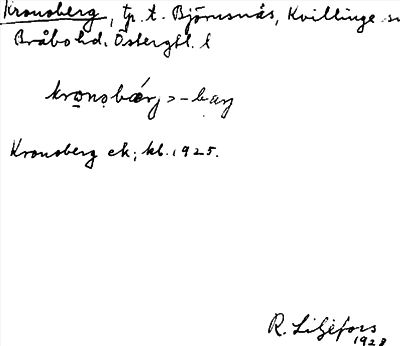 Kronsberg, tp. t. Björnsnäs, Kvillinge sn
Bråbo hd. Östergtl.
kronsbærj > -bærj
Kronsberg ek; kb. 1925.
R. Liljefors
1928